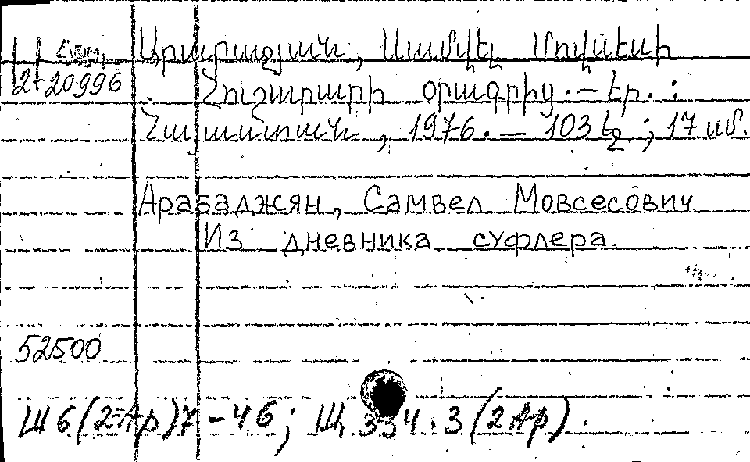 Արաբաջյան, Սամվել Մովսեսի
2-20996 Հուշարարի օրագրից.— Եր. :
Հայաստան, 1976. — 103 էջ ; 17 սմ.
Арабаджян, Самвел Мовсесович
Из дневника суфлера
52500
Щ6(2-Ар)7-46; Щ 334.3(2Ар).